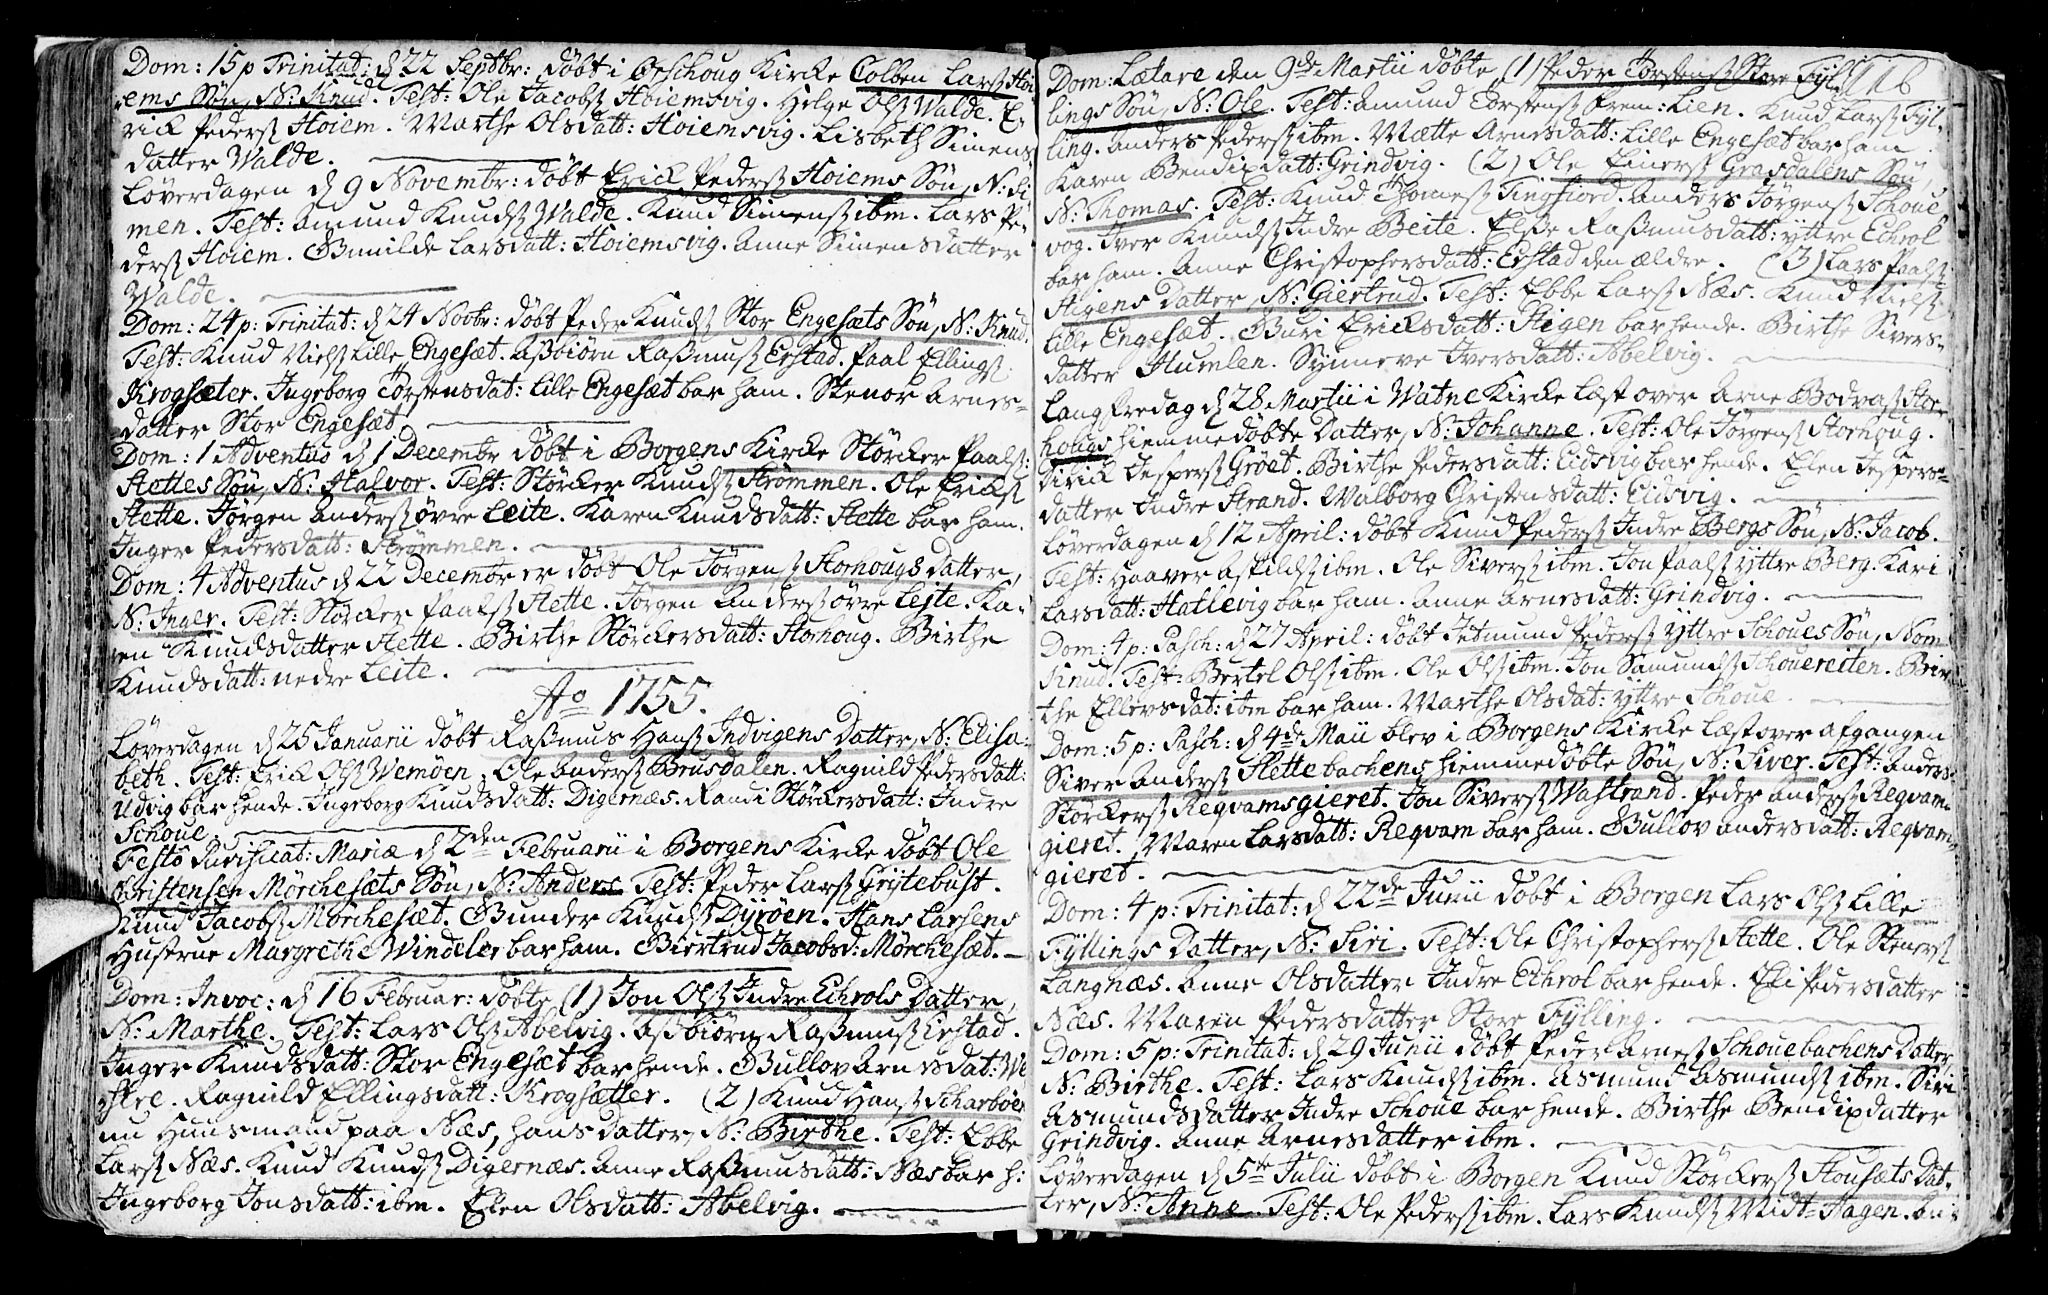 Dom: 15 p Trinitat: d 22 Septbr: döbt i Ørschoug Kirke Colben Larsß Hoi-
ems Sön, N: Knud. Test: Ole Jacobsß Hoiemsvig. Helge Olsß Walde. E-
rick Pedersß Hoiem. Marthe Olsdatt: Hoiemsvig. Lisbeth Simens
datter Walde.
Löverdagen d 9 Novembr: döbt Erick Pedersß Hoiems Sön, N: Si-
men. Test: Amund Knudsß Walde. Knud Simensß ibm. Lars Pe-
dersß Hoiem. Gunilde Larsdatt: Hoiemsvig. Anne Simensdatter
Walde.
Dom: 24 p: Trinitat: d 24 Novbr: döbt Peder Knudsß Stor Engesæts Sön, N: Knud.
Test: Knud Nielsß Lille Engesæt. Asbiörn Rasmusß Erstad. Paal Ellingsß
Krogsæter. Ingeborg Torstensdat: Lille Engesæt bar ham. Stenor Arnes-
datter Stor Engesæt.
Dom: 1 Adventus d 1 Decembr döbt i Borgens Kirke Störker Paalsß:
Stettes Sön, N: Halvor. Test: Störker Knudsß Strömmen. Ole Ericksß
Stette. Jörgen Andersß övre Leite. Karen Knudsdatt: Stette bar ham.
Inger Pedersdatt: Strömmen.
Dom: 4 Adventus d 22 Decembr er döbt Ole Jörgensß Storhougs Datter,
N: Inger. Test: Störker Paalsß Stette. Jörgen Andersß övre Leite. Ka-
ren Knudsdatter Stette. Birthe Störckersdatt: Storhoug. Birthe
Knudsdatt: nedre Leite.
Ao 1755.
Löverdagen d 25 Januarii döbt Rasmus Hansß Indvigens Datter, N: Elisa-
beth. Test: Erick Olsß Wemöen. Ole Andersß Brusdalen. Ragnild Pedersdatt:
Udvig bar hende. Ingeborg Knudsdatt: Digernæs. Randi Störckersdatt: Indre
Schoue.
Festo Purificat: Mariæ d 2den Februarii i Borgens Kirke döbt Ole
Christensen Mörchesæts Sön, N: Anders. Test: Peder Larsß Erstebust.
Knud Jacobsß Mörchesæt. Gunder Knudsß Dyröen. Hans Larsens
Hustrue Margrethe Windeler bar ham. Giertrud Jacobsd: Mörchesæt.
Dom: Invoc: d 16 Februar: döbte (1) Jon Olsß Indre Echrols Datter,
N: Marthe. Test: Lars Olsß Abelvig. Asbiörn Rasmusß Erstad.
Inger Knudsdatt: Stor Engesæt bar hende. Gullov Arnesdat: We
stre. Ragnild Ellingsdatt: Krogsætter. (2) Knud Hansß Scharböen
nu Huusmand paa Næs, hans Datter, N: Birthe. Test: Ebbe
Larsß Næs. Knud Knudsß Digernæs. Anne Rasmusdatt: Næs bar h:
Ingeborg Jonsdatt: ibm. Elen Olsdatt: Abelvig.
116
Dom: Lætare den 9de Martii döbte (1) Peder Torstensß Store Fyl-
lings Sön, N: Ole. Test: Amund Torstensß Frem: Lien. Knud Larsß Fyl-
ling. Anders Pedersß ibm. Mætte Arnesdatt: Lille Engesæt bar ham
Karen Bendixdatt: Grindvig. (2) Ole Einersß Grasdalens Sön,
N: Thomas. Test: Knud Thomesß Tingfiord. Anders Jörgensß Schoue
vog. Iver Knudsß Indre Beite. Else Rasmusdatt: Yttre Echrol
bar ham. Anne Christophersdatt: Erstad den ældre. (3) Lars Paalsß
Stigens Datter, N: Giertrud. Test: Ebbe Larsß Næs. Knud Nielsß
Lille Engesæt. Guri Ericksdatt: Stigen bar hende. Birthe Sivers-
datter Humlen. Synneve Iversdatt: Abelvig.
Langfredag d 28 Martii i Watne Kirke læst over Arne Bodvasß Stor
hougs hiemmedöbte Datter, N: Johanne. Test: Ole Jörgensß Storhoug.
Dirick Jespersß Gröet. Birthe Pedersdatt: Eidsvig bar hende. Elen Jespers-
datter Indre Strand. Walborg Christensdatt: Eidsvig.
Löverdagen d 12 April: döbt Knud Pedersß Indre Bergs Sön, N: Jacob.
Test: Haaver Askildsß ibm. Ole Siversß ibm. Jon Paalsß Yttre Berg. Kari
Larsdatt: Hatlevig bar ham. Anne Arnesdatt: Grindvig.
Dom: 4 p: Pasch: d 27 April: döbt Jetmund Pedersß Yttre Schoues Sön, Nom:
Knud. Test: Bertel Olsß ibm. Ole Olsß ibm. Jon Samundsß Schouereiten. Bir-
the Ellevsdat: ibm bar ham. Marthe Olsdat: Yttre Schoue.
Dom: 5 p: Pasch: d 4de Maii blev i Borgens Kirke læst over afgangen
Siver Andersß Stettebachens hiemmedöbte Sön, N: Siver. Test: Anders
Störckersß Reqvamsgieret. Jon Siversß Wastrand. Peder Andersß Reqvam-
gieret. Maren Larsdatt: Reqvam bar ham. Gullov Andersdatt: Reqvam-
gieret.
Dom: 4 p: Trinitat: d 22de Junii döbt i Borgen Lars Olsß Lille
Fyllings Datter, N: Siri. Test: Ole Christophersß Stette. Ole Stenersß
Langnæs. Anne Olsdatter Indre Echrol bar hende. Eli Pedersdatter
Næs. Maren Pedersdatter Store Fylling.
Dom: 5 p: Trinitat: d 29 Junii döbt Peder Arnesß Schouebachens Datter,
N: Birthe. Test: Lars Knudsß ibm. Asmund Asmundsß ibm. Siri
Asmundsdatter Indre Schoue bar hende. Birthe Bendixdatter
Grindvig. Anne Arnesdatter ibm.
Löverdagen d 5te Julii döbt i Borgen Knud Störckersß Stousæts Dat-
ter, N: Anne. Test: Ole Pedersß ibm. Lars Knudsß Midt-Hagen. An-